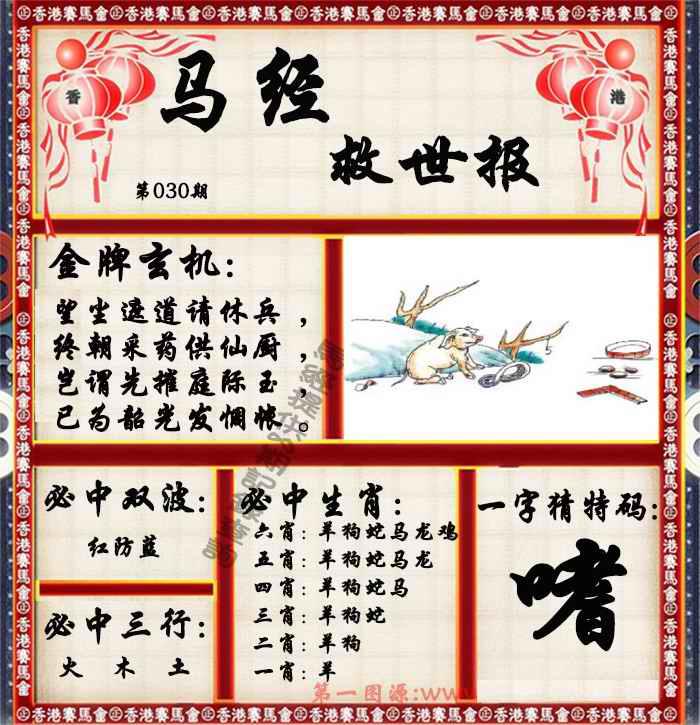 香港賽馬會
香
港
马经
救世报
第030期
金牌玄机:
望尘遮道请休兵，
终朝采药供仙厨，
岂谓先摧庭际玉，
已为韶光发惆怅。
必中双波:
红防蓝
必中三行:
火 木 土
必中生肖:
六肖: 羊狗蛇马龙鸡
五肖: 羊狗蛇马龙
四肖: 羊狗蛇马
三肖: 羊狗蛇
二肖: 羊狗
一肖: 羊
一字猜特码:
嗜
第一图源:www